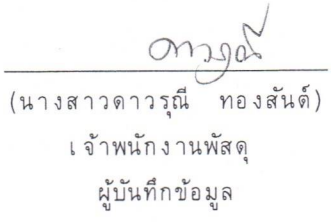 ดาวรุณี
(นางสาวดาวรุณี ทองสันต์)
เจ้าพนักงานพัสดุ
ผู้บันทึกข้อมูล